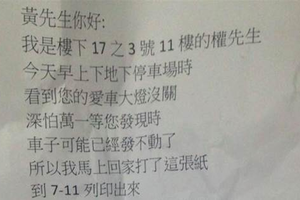 黃先生你好:
我是樓下 17 之 3 號 11 樓的權先生
今天早上下地下停車場時
看到您的愛車大燈沒關
深怕萬一等您發現時
車子可能已經發不動了
所以我馬上回家打了這張紙
到 7-11 列印出來